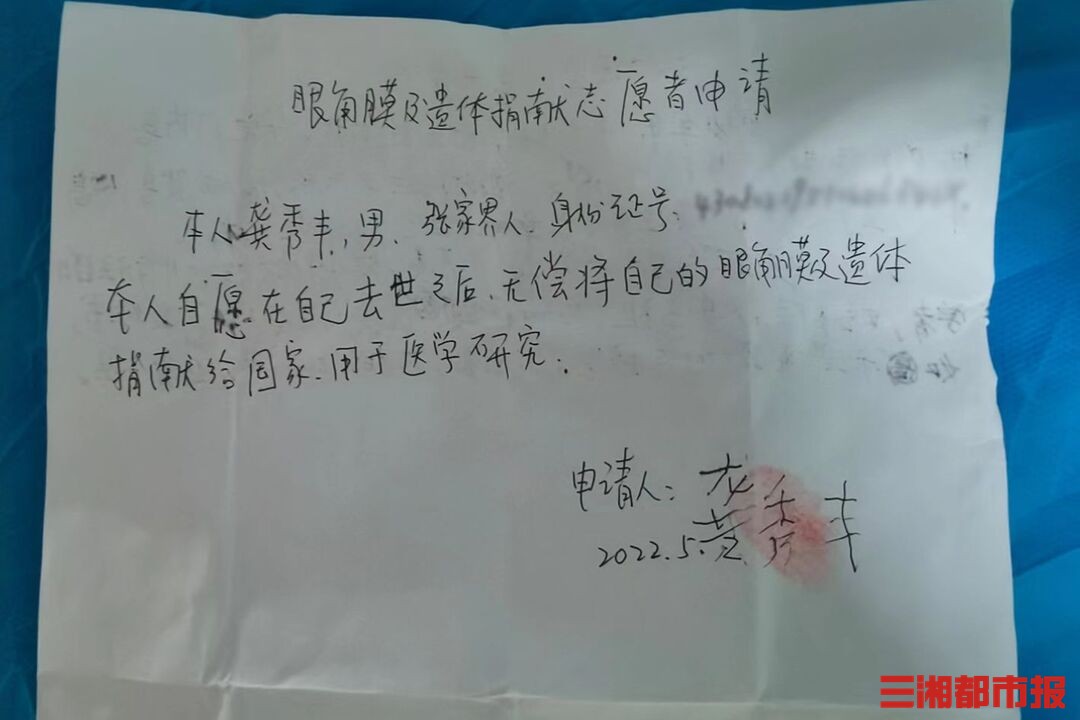 眼角膜及遗体捐献志愿者申请
本人龚秀丰,男、张家界人、身份证号:
本人自愿在自己去世之后、无偿将自己的眼角膜及遗体
捐献给国家、用于医学研究.
申请人: 龚秀丰
2022.5.
三湘都市报